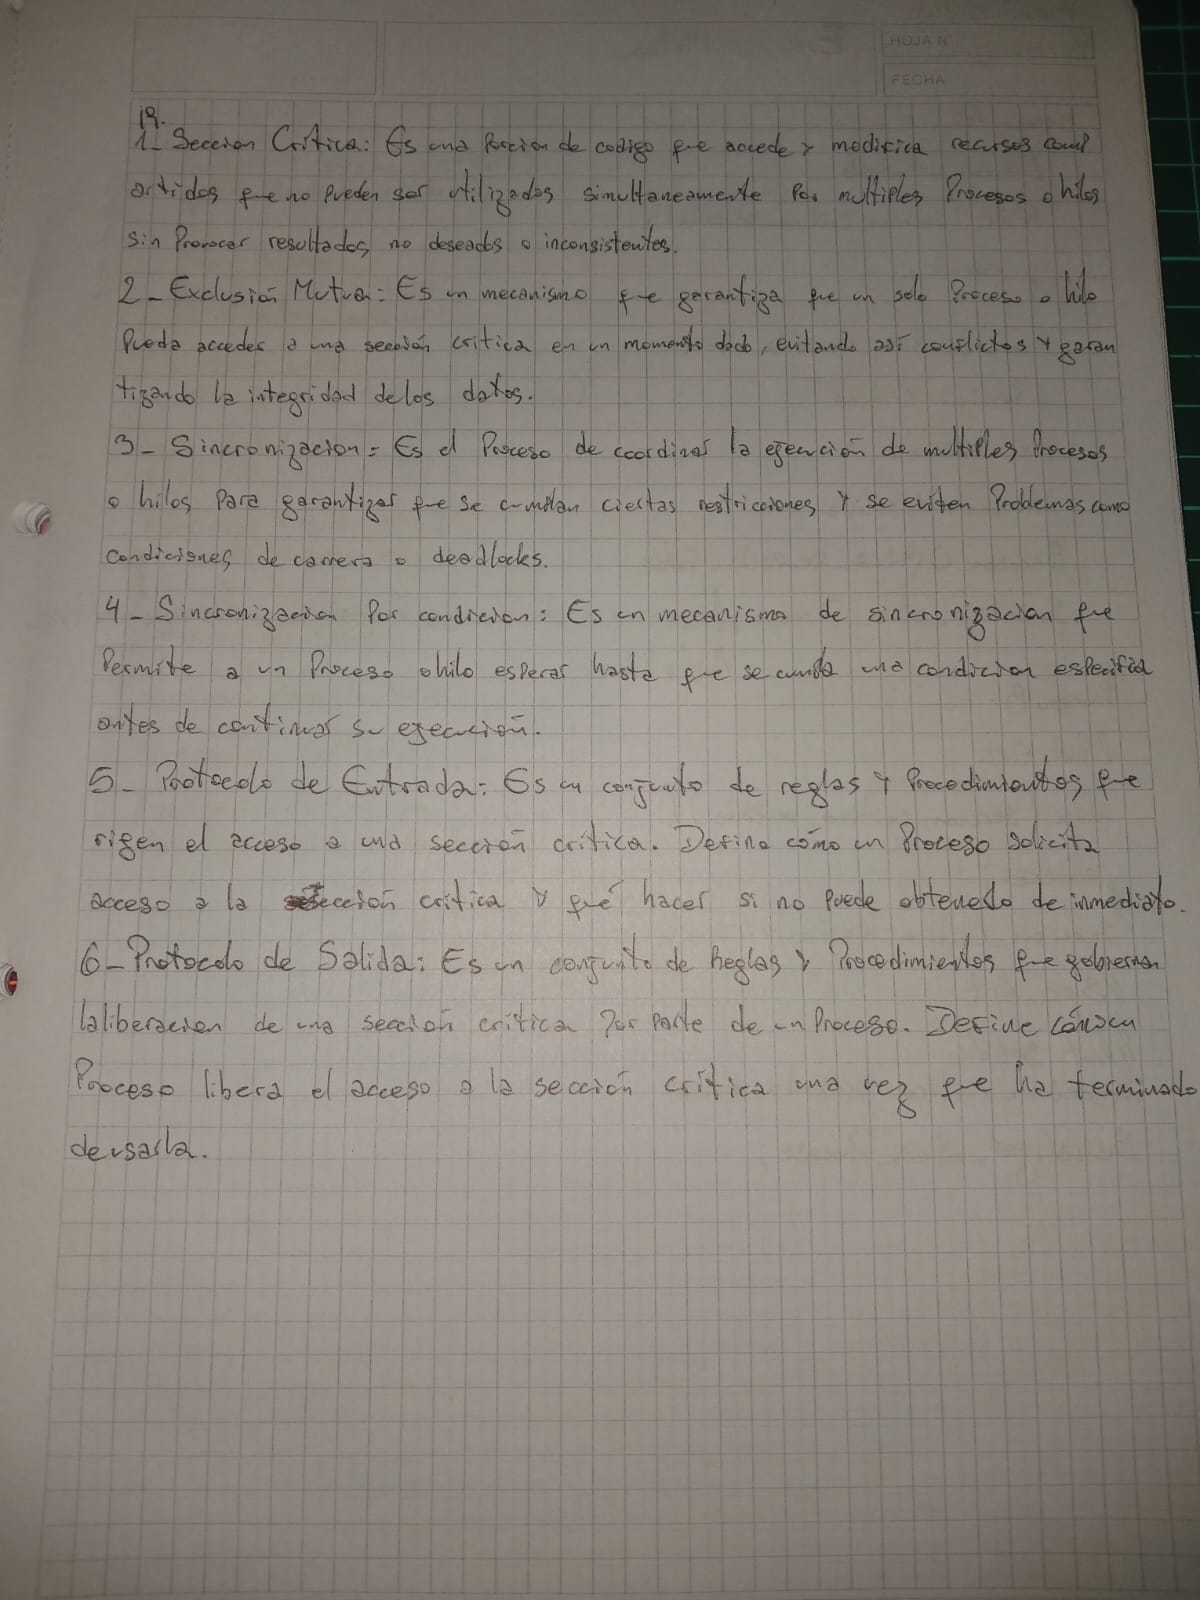 HOJA N°
FECHA
19.
1_ Seccion Crítica: Es una Porcion de codigo que accede y modifica recursos comp
artidos que no pueden ser utilizados simultaneamente Por multiples Procesos o hilos
sin Provocar resultados no deseados o inconsistentes.
2_ Exclusión Mutua: Es un mecanismo que garantiza que un solo Proceso o hilo
Pueda acceder a una sección crítica en un momento dado, evitando así conflictos y garan
tizando la integridad de los datos.
3_ Sincronizacion: Es el Proceso de coordinar la ejecución de multiples Procesos
o hilos Para garantizar que se cumplan ciertas restricciones y se eviten Problemas como
condiciones de carrera o deadlocks.
4_ Sincronizacion Por condicion: Es un mecanismo de sincronizacion que
Permite a un Proceso o hilo esperar hasta que se cumpla una condicion especifica
antes de continuar su ejecución.
5_ Protocolo de Entrada: Es un conjunto de reglas y Procedimientos que
rigen el acceso a una sección crítica. Define cómo un Proceso solicita
acceso a la sección crítica y qué hacer si no puede obtenerlo de inmediato.
6_ Protocolo de Salida: Es un conjunto de Reglas y Procedimientos que gobiernan
la liberacion de una sección crítica Por Parte de un Proceso. Define cómo un
Proceso libera el acceso a la sección crítica una vez que ha terminado
de usarla.